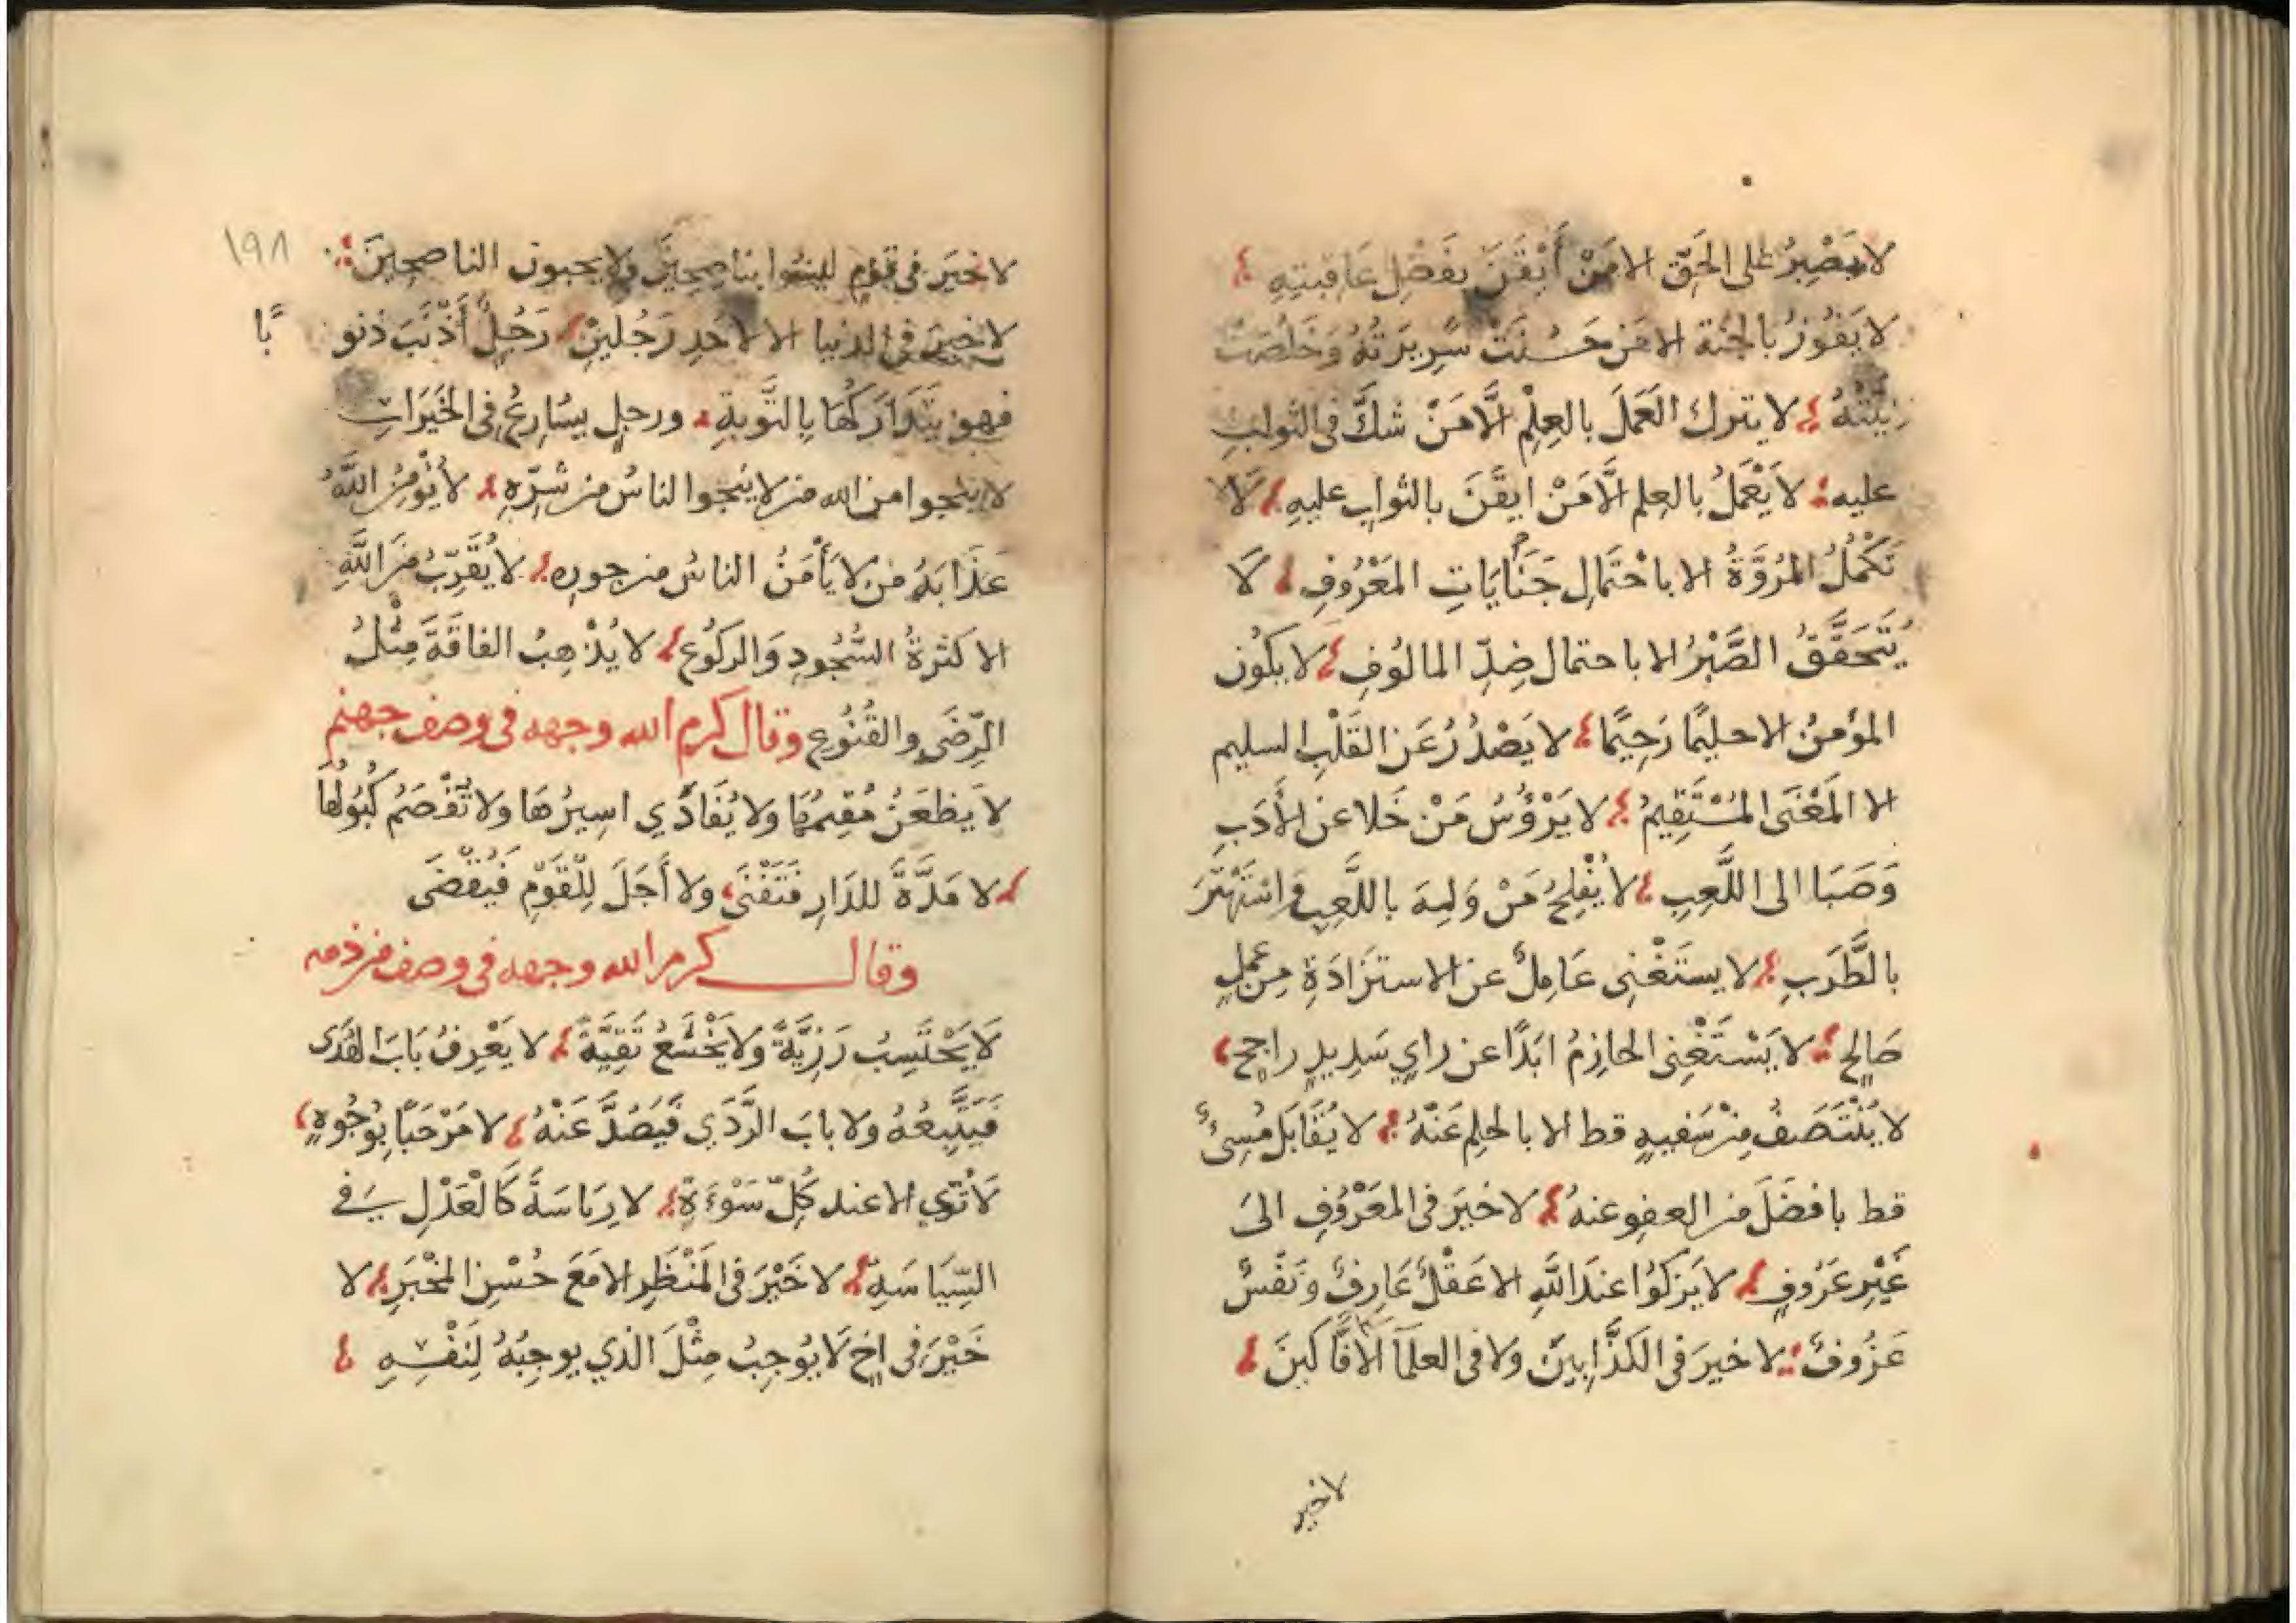 لا يَصْبِرُ على الحَقّ الا مَنْ أَيْقَنَ بفَضْلِ عَاقِبتِهِ
لا يَفُوزُ بالجنة الا مَن حَسُنَتْ سَرِيرَتُهُ وَخَلُصَتْ
نِيَّتُهُ لا يترك العَمَلَ بالعِلْمِ الَّا مَنْ شَكَّ فى الثوابِ
عليه لا يَعْمَلُ بالعِلم الَّا مَنْ ايقَنَ بالثوابِ عليهِ لَا
تَكْمُلُ المُرُوَّةُ الا باحْتمَالِ جَنَايَاتِ المَعْرُوفِ لَا
يَتَحَقَّقُ الصَّبْرُ الا باحتمال ضِدِّ المالوُفِ لا يكُون
المؤمنُ الا حليمًا رَحِيمًا لا يَصْدُرُ عَن القَلْبِ السليم
الا المَعْنَى المُسْتَقِيمُ لا يَرْؤُسُ مَنْ خَلا عن الأَدَبِ
وَصَبَا الى اللَّعِبِ لا يُفْلِحُ مَنْ وَلِهَ باللَّعِبِ وَاسْتَهْتَرَ
بالطَّرَبِ لا يستَغْنِى عَامِلٌ عن الاستزَادَةِ مِن عملٍ
صَالحٍ لا يَسْتَغْنِى الحازِمُ ابَدًا عن رايٍ سَدِيدٍ راجحٍ
لا يُنْتَصَفُ مِنْ سَفيهٍ قط الا بالحلِمِ عَنْهُ لا يُقَابَل مُسِئٌ
قط بافضَلَ من العفو عنهُ لا خيرَ فى المَعْرُوُفِ الىَ
غَيْرِ عَرُوفٍ لا يَزكُوُا عندَ اللَّهِ الا عَقْلٌ عَارِفٌ وَنَفْسٌ
عَزُوفٌ لا خيرَ فى الكَذَّابِينَ ولا فى العلمآ الأفَّاكينَ
لا خير
١٩٨
لا خيَرَ فى قوْمٍ ليسُوا بناصِحِينَ ولا يحبون الناصحِينَ
لا خيرَ فى الدنيا الا لاحَدِ رَجُلَينِْ رَجُلٍ أَذْنَبَ ذنو
بًا
فهو يَتَدَارَكُهَا بِالتَّوبةِ ورجلٍ يسُارِعُ فى الخَيَراتِ
لا ينجوا من الله من لا ينَجوا الناسُ من شرّهِ لا يُؤْمِنُ اللَّهُ
عَذَابَهُ من لا يَأْمَنُ الناسُ من جوره لا يُقَرّبُ مِنَ اللَّهِ
الا كثرةُ السُّجُودِ وَالركُوُع لا يُذْهِبُ الفاقَةَ مِثْلُ
الرِّضَى والقُنُوُع وقال كرم الله وجهه فى وصف جهنم
لا يَظعَنُ مُقِيمُهَا ولا يُفَادَي اسِيرُهَا ولا تُفْصَمُ كُبُولُهَا
لا مَدَّةَ للدَارِ فَتَفْنَى ولا أَجَلَ لِلْقَوْمِ فَيُقْضَى
وقال كرم الله وجهه فى وصف من ذمه
لَا يَحْتَسِبُ رَزِيَّةً ولا يَخْشَعُ تَقِيَّةً لا يَعْرِفُ بَابَ الهُدَى
فَيَتَّبِعُهُ ولا بابَ الرَّدَي فَيَصُدَّ عَنْهُ لا مَرْحَبًا بِوُجُوهٍ
لَا تُرَي الا عند كُلِّ سَوْءَةٍ لا رِيَاسَةَ كَالْعَدْلِ فى
السِّيَاسَةِ لا خَيْرَ فى المَنْظَرِ الا مَعَ حُسْنِ المخْبَرِ لا
خَيْرَ فى اخٍ لَا يُوجِبُ مِثْلَ الذي يوجِبُهُ لِنَفْسِهِ